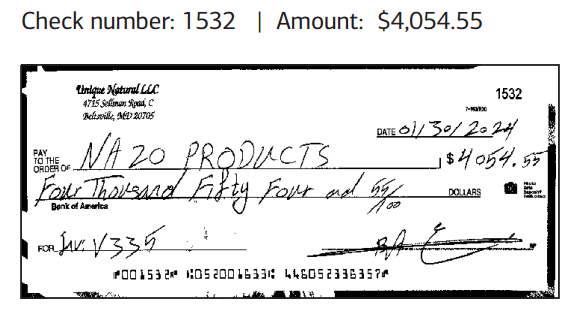 Check number: 1532 | Amount: $4,054.55
Unique Natural LLC
4715 Sellman Road, C
Beltsville, MD 20705
1532
DATE 01/30/2024
PAY TO THE ORDER OF NA20 PRODUCTS $4054.55
Four Thousand Fifty Four and 55/100 DOLLARS
Bank of America
FOR Inv: V335
⑈001532⑈ ⑆052001633⑆ 446052336357⑈